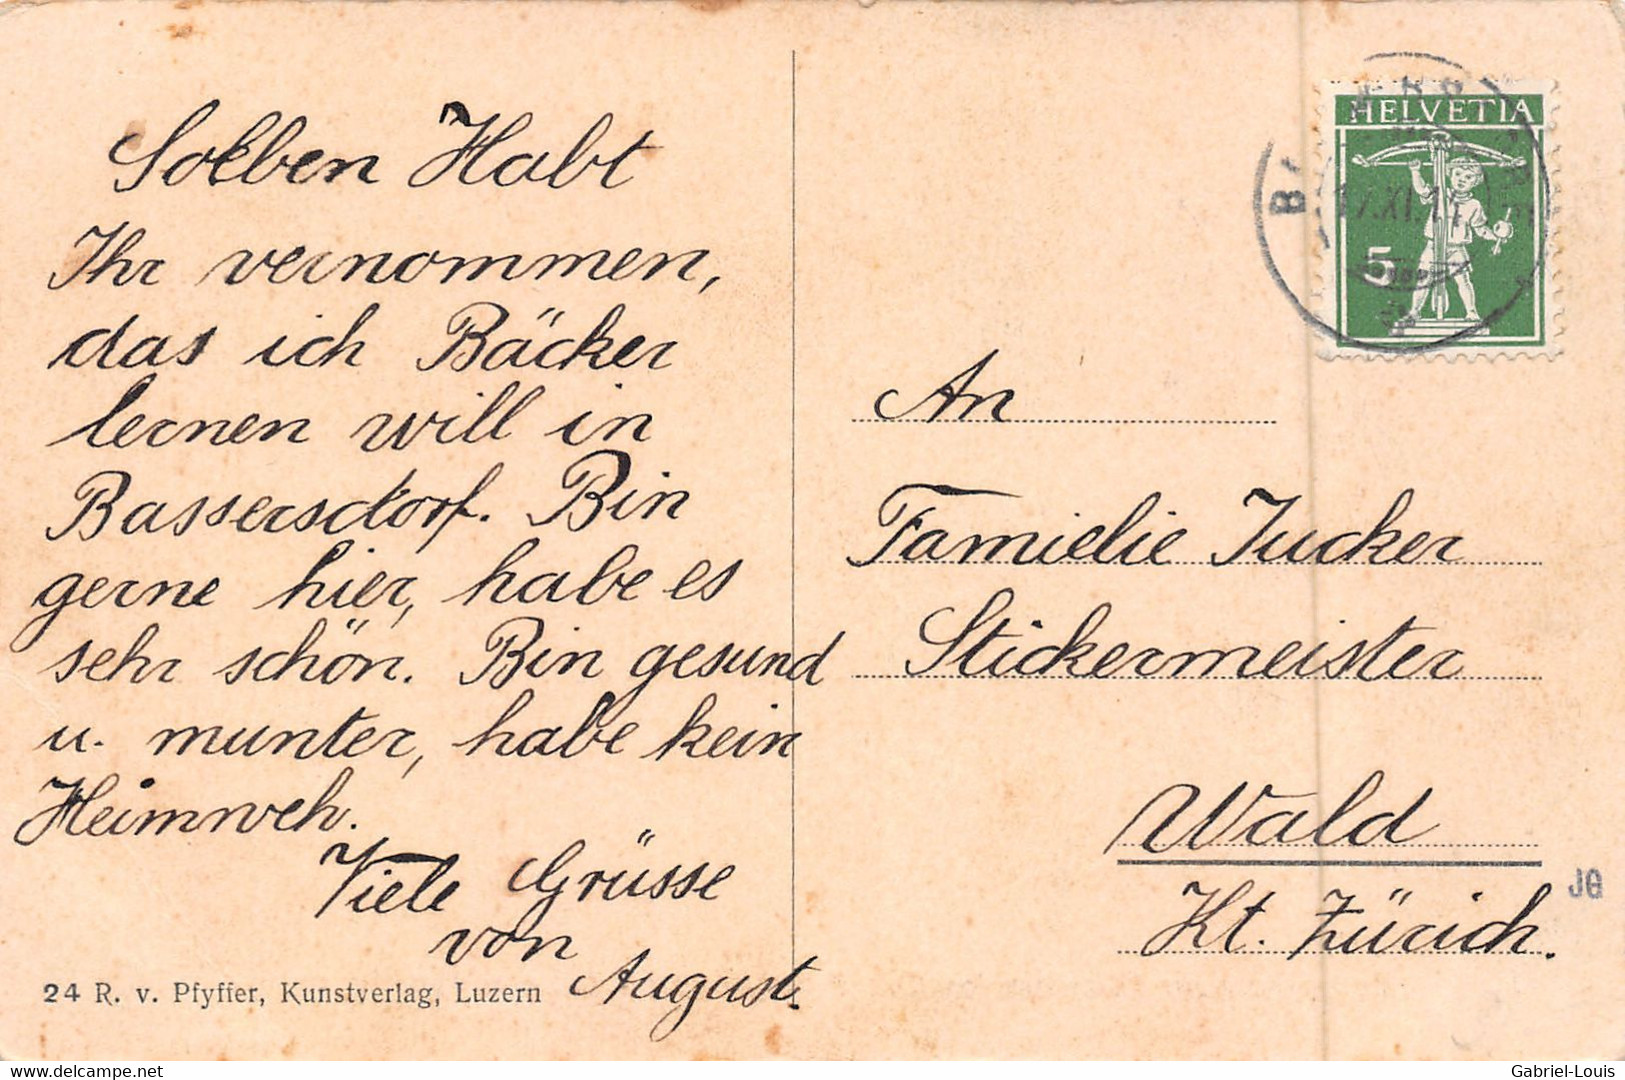 Solben Habt
Ihr vernommen,
das ich Bäcker
lernen will in
Bassersdorf. Bin
gerne hier, habe es
sehr schön. Bin gesund
u. munter, habe kein
Heimweh.
Viele Grüsse
von
August.
24 R. v. Pfyffer, Kunstverlag, Luzern
HELVETIA
5
An
Famielie Jucker
Stickermeister
Wald
Kt. Zürich.
JG
delcampe.net
Gabriel-Louis